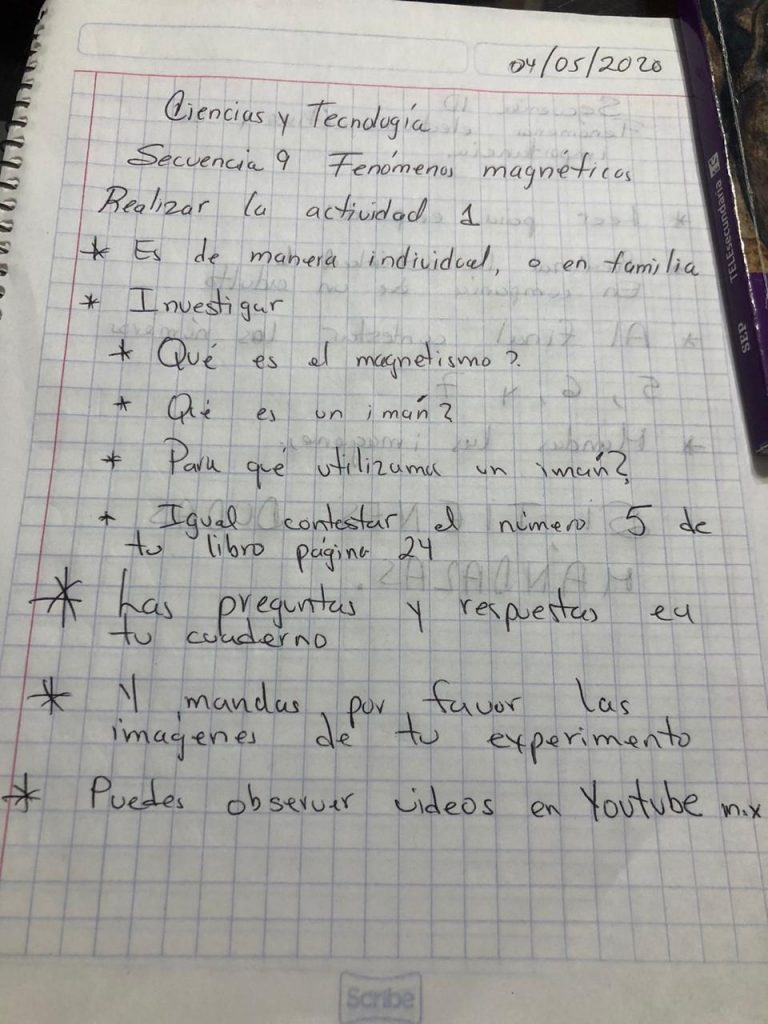 04/05/2020
Ciencias y Tecnología
Secuencia 9 Fenómenos magnéticos
Realizar la actividad 1
* Es de manera individual, o en familia
* Investigar
* Qué es el magnetismo?
* Qué es un imán?
* Para qué utilizamа un imán?
* Igual contestar el número 5 de
tu libro página 24
* Las preguntas y respuestas en
tu cuaderno
* Y mandas por favor las
imagenes de tu experimento
* Puedes observar videos en Youtube mx
Scribe
TELEsecundaria
SEP